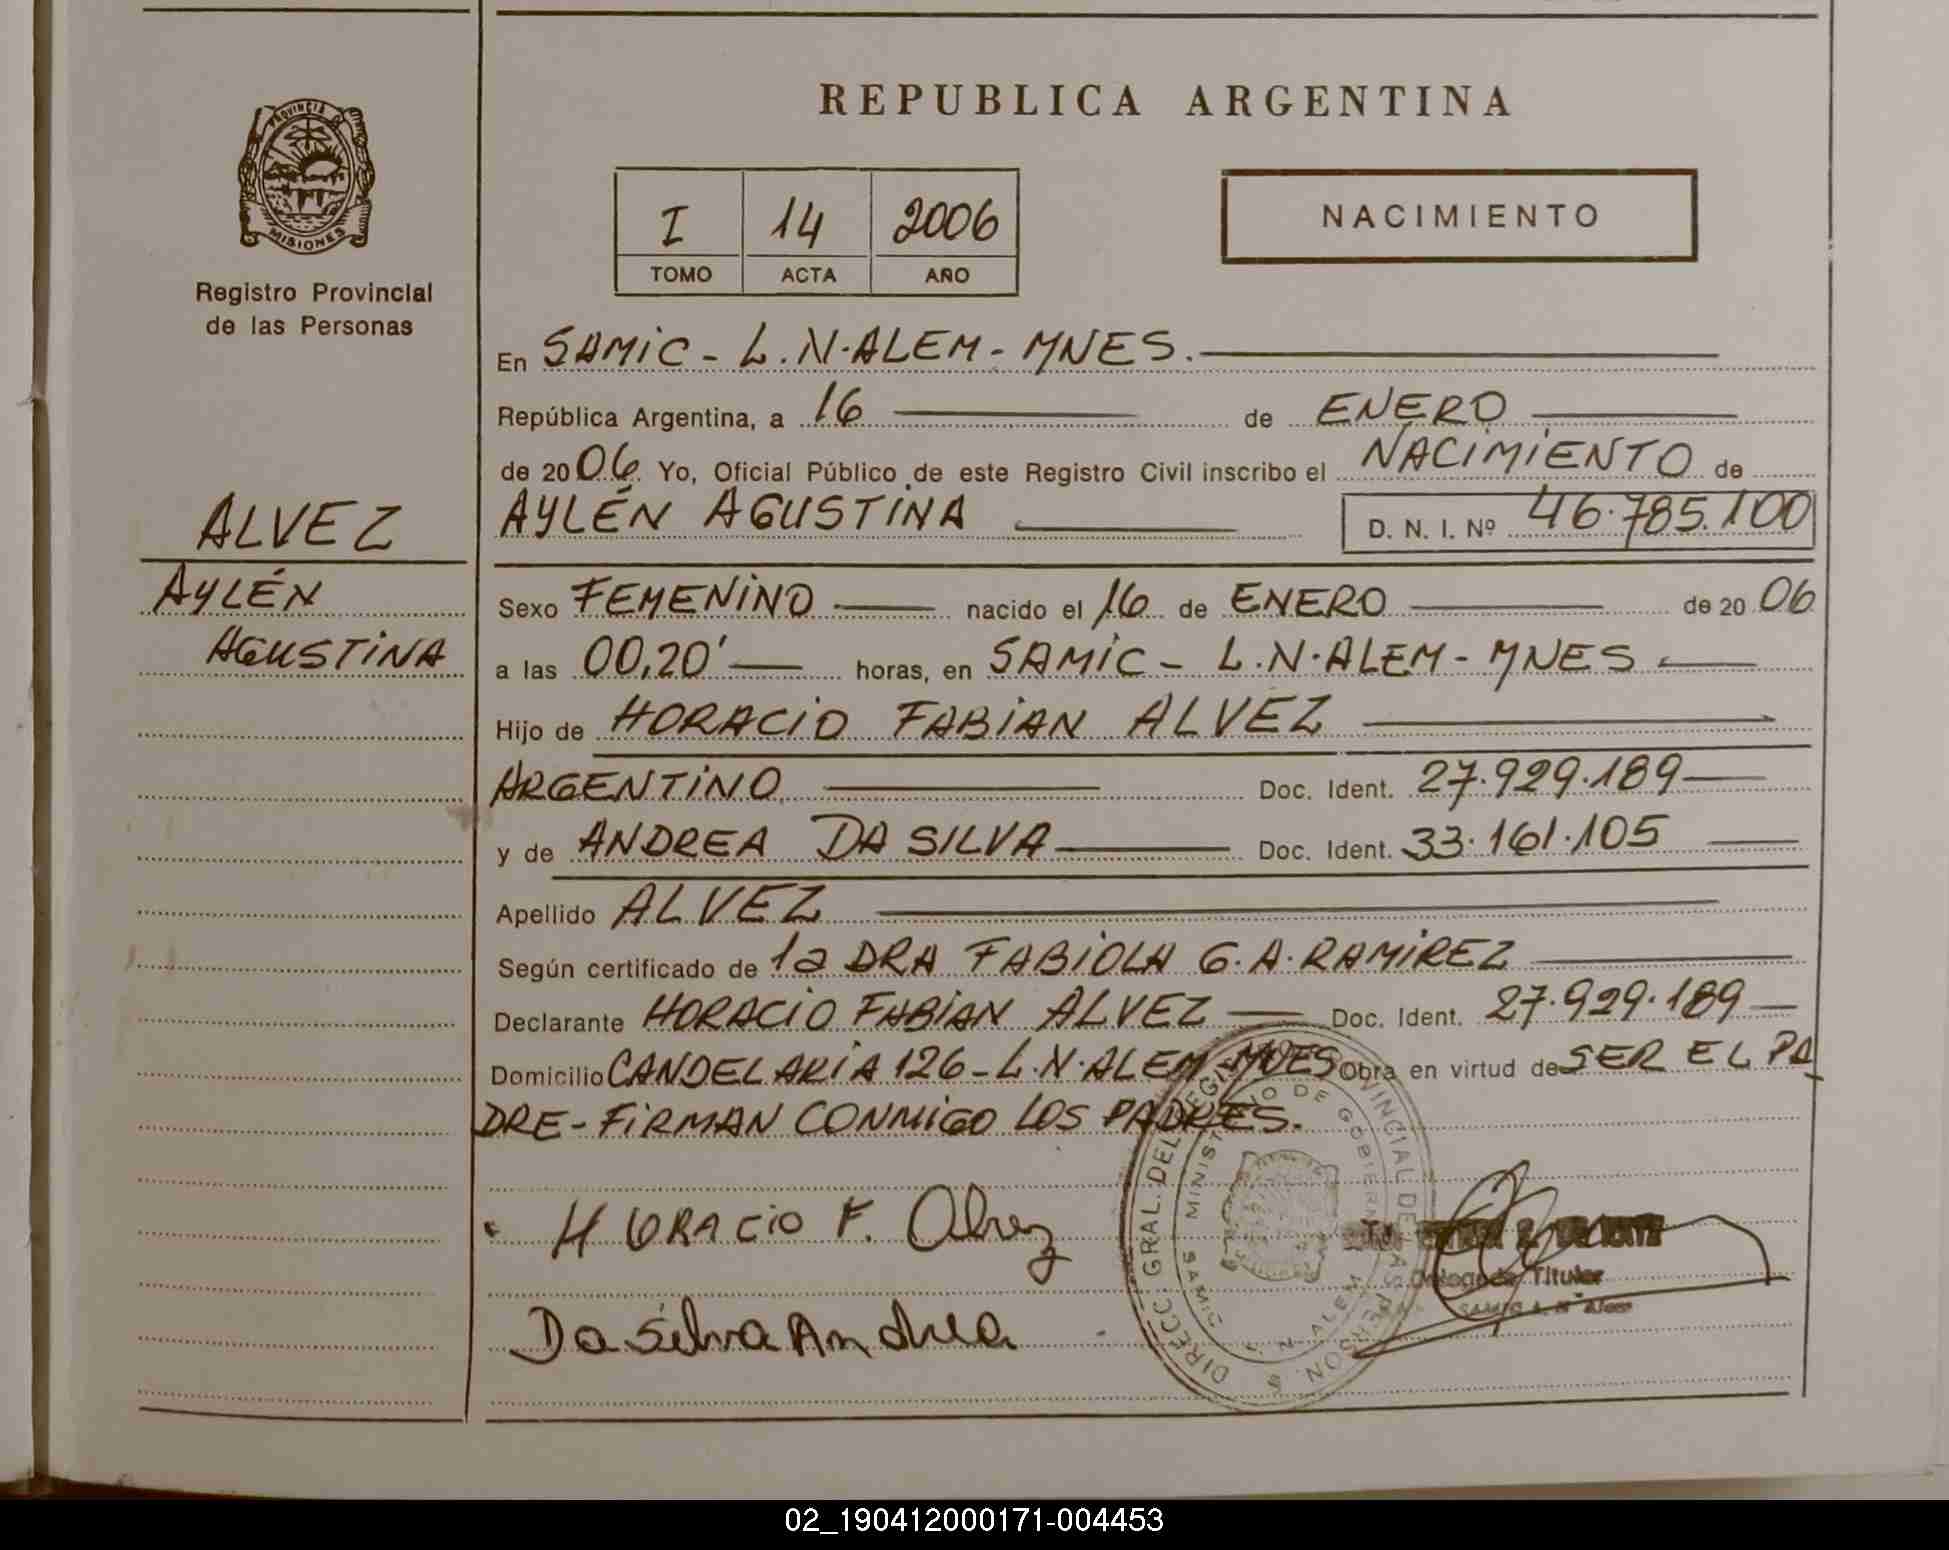 REPUBLICA ARGENTINA
PROVINCIA DE
MISIONES
Registro Provincial
de las Personas
I 14 2006
TOMO ACTA AÑO
NACIMIENTO
ALVEZ
AYLÉN
AGUSTINA
En SAMIC - L.N.ALEM - MNES.
República Argentina, a 16 de ENERO
de 2006 Yo, Oficial Público de este Registro Civil inscribo el NACIMIENTO de
AYLÉN AGUSTINA D. N. I. Nº 46.785.100
Sexo FEMENINO nacido el 16 de ENERO de 2006
a las 00,20' horas, en SAMIC - L.N.ALEM - MNES
Hijo de HORACIO FABIAN ALVEZ
ARGENTINO Doc. Ident. 27.929.189
y de ANDREA DA SILVA Doc. Ident. 33.161.105
Apellido ALVEZ
Según certificado de la DRA FABIOLA G.A.RAMIREZ
Declarante HORACIO FABIAN ALVEZ Doc. Ident. 27.929.189
Domicilio CANDELARIA 126 - L.N.ALEM - MNES Obra en virtud de SER EL PA
DRE - FIRMAN CONMIGO LOS PADRES.
HORACIO F. Alvez
Da Silva Andrea
DIRECC. GRAL. DEL REGISTRO PROVINCIAL DE LAS PERSON.
MINISTERIO DE GOBIERNO
SAMIC L. N. ALEM
Delegada Titular
SAMIC L. N. Alem
02_190412000171-004453